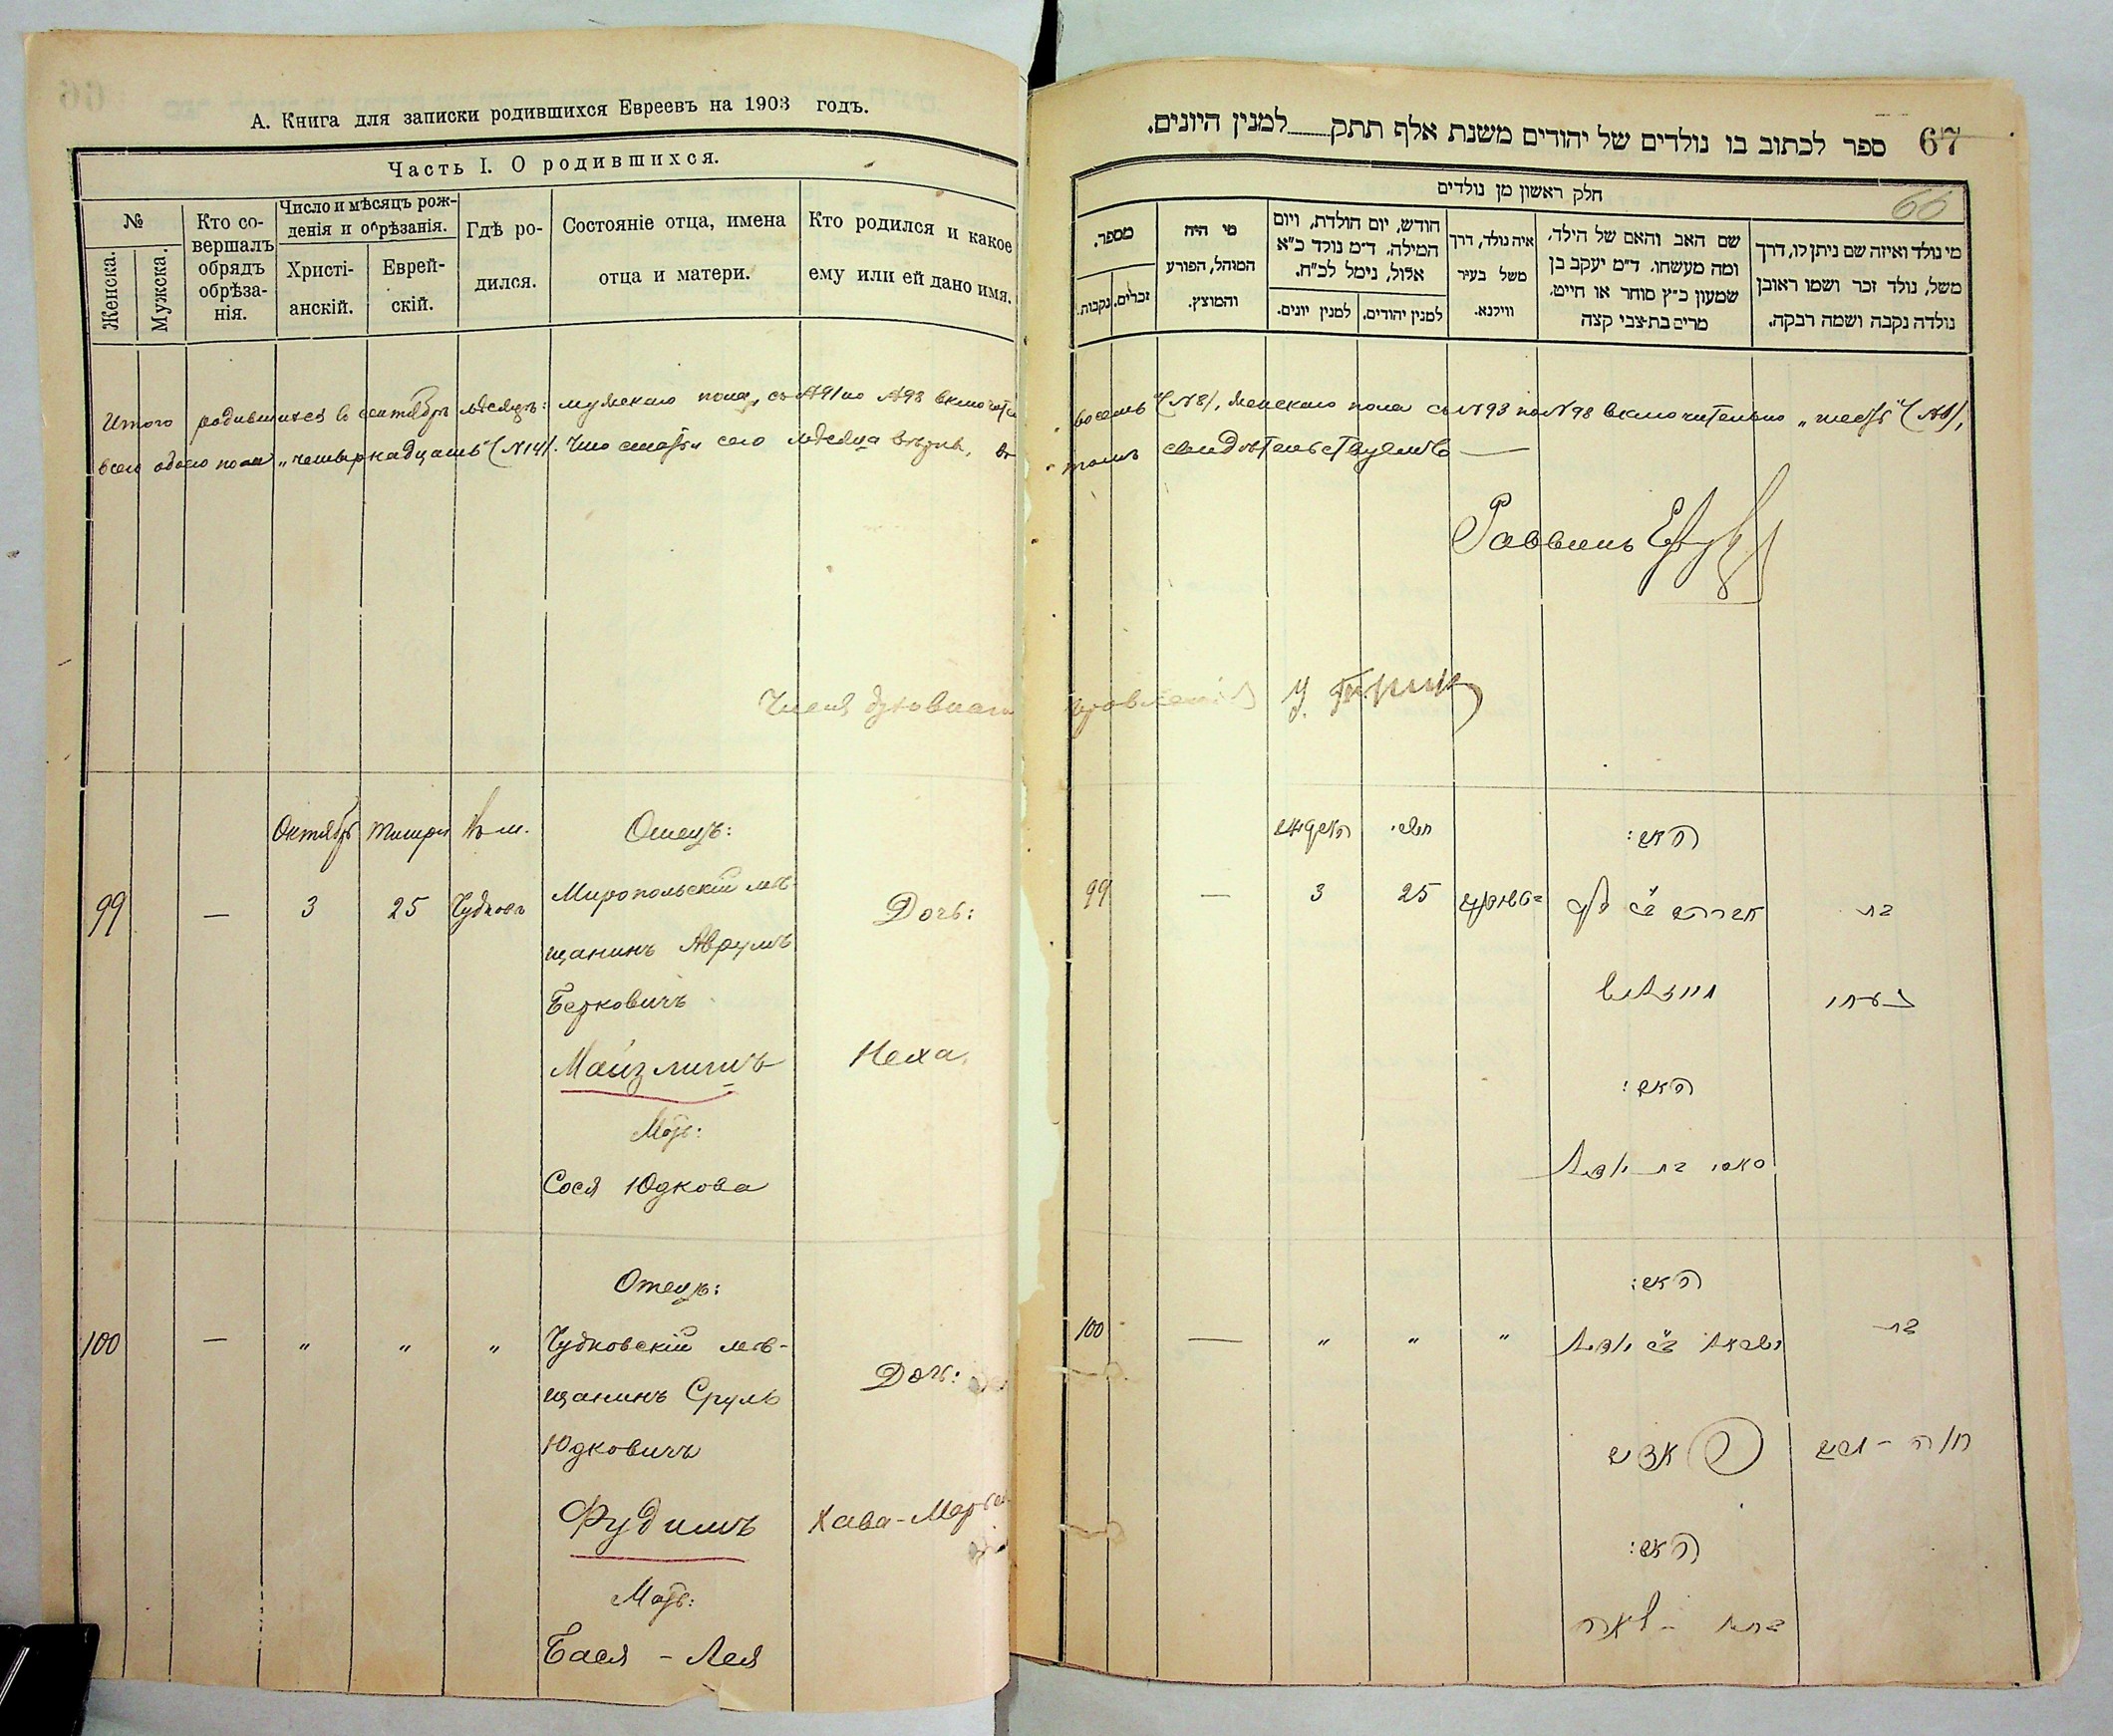 А. Книга для записки родившихся Евреевъ на 1903 годъ.
Часть I. О родившихся.
№
Женска.
Мужска.
Кто совершалъ обрядъ обрѣзанія.
Число и мѣсяцъ рожденія и обрѣзанія.
Христіанскій.
Еврейскій.
Гдѣ родился.
Состояніе отца, имена отца и матери.
Кто родился и какое ему или ей дано имя.
Итого родившихся въ сентябрѣ мѣсяцѣ: мужскаго пола, съ №91 по №98 включительно
всего обоего пола „четырнадцать" (№14). Что статьи сего мѣсяца вѣрны, въ
Члены духовнаго
Октябрь Тишри въ м. Отецъ:
99 — 3 25 Чудновъ Миропольскій мѣ-
щанинъ Аврумъ Дочь:
Берковичъ
Майзлишъ Неха
Мать:
Сося Юдкова
Отецъ:
100 — „ „ „ Чудновскій мѣ-
щанинъ Сруль Дочь:
Юдковичъ
Фудимъ Хава-Марьям
Мать:
Бася - Лея
67 ספר לכתוב בו נולדים של יהודים משנת אלף תתק__למנין היונים.
66
חלק ראשון מן נולדים
מספר.
נקבות.
זכרים.
מי היה
המוהל, הפורע
והמוצץ.
חודש, יום הולדת, ויום
המילה. ד״מ נולד כ״א
אלול, נימל לכ״ח.
למנין יונים.
למנין יהודים.
איה נולד, דרך
משל בעיר
ווילנא.
שם האב והאם של הילד,
ומה מעשהו. ד״מ יעקב בן
שמעון כ״ץ סוחר או חייט,
מרים בת-צבי קצה
מי נולד ואיזה שם ניתן לו, דרך
משל, נולד זכר ושמו ראובן
נולדה נקבה ושמה רבקה.
восемь" (№8), женскаго пола съ №93 по №98 включительно „шесть" (№6),
томъ свидѣтельствуемъ —
Раввинъ
правленія
האב:
99 — 3 25 אברהם ב״ר בת
האם:
סאסי בת יודקא
האב:
100 — „ „ „ ישראל ב״ר יודקא בת
חוה - מרים
האם:
באסי - לאה